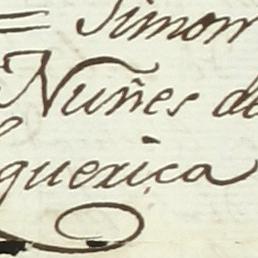 = Simon
Nuñes de
querica